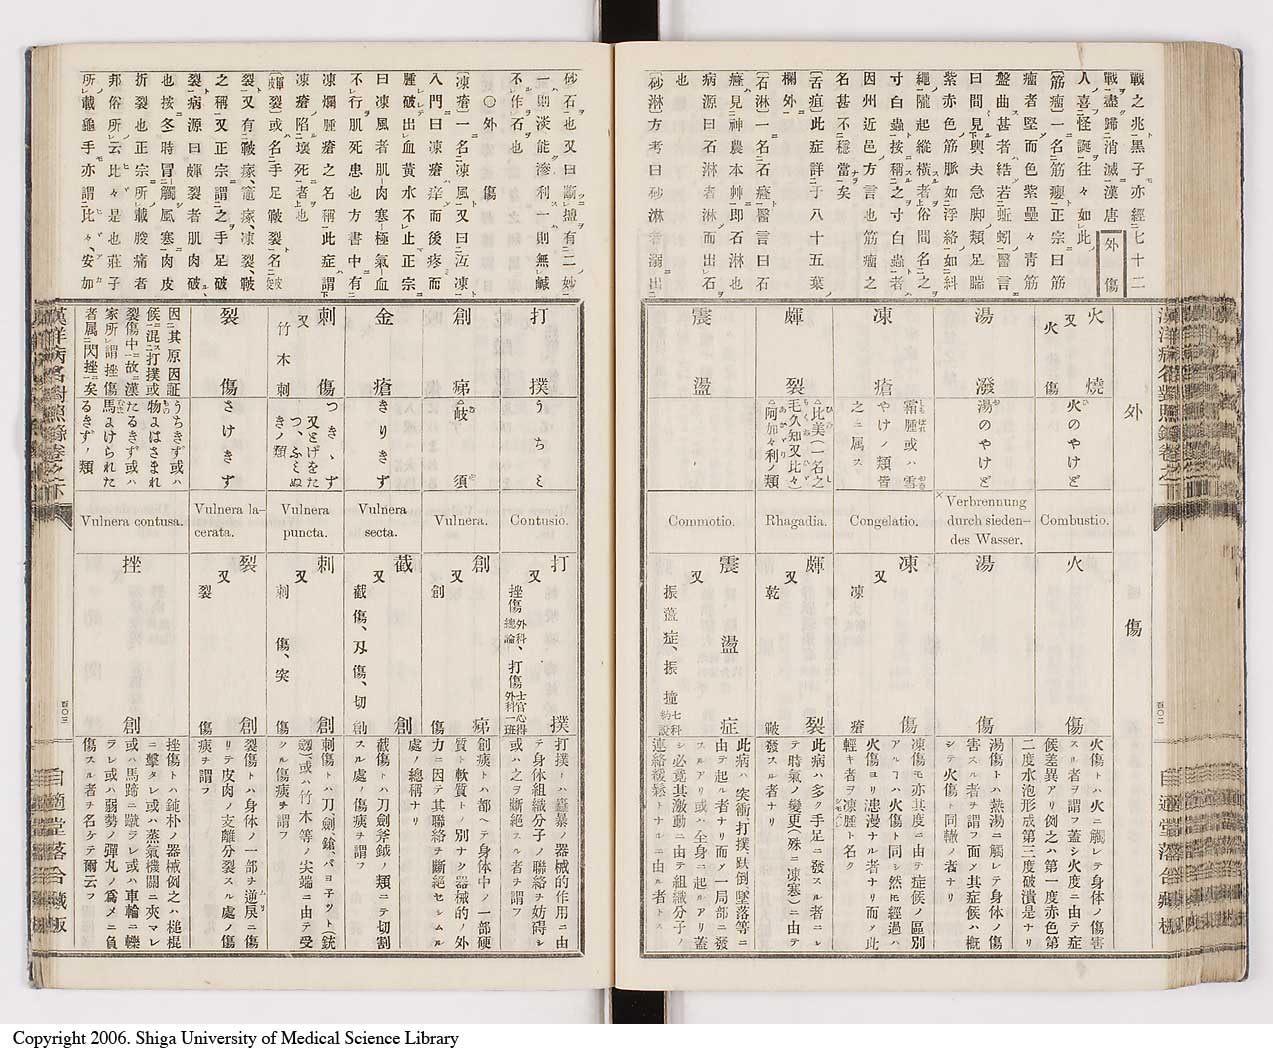 戰之兆黑子亦經七十二
戰盡歸消滅漢唐
人喜怪誕往々如此
外傷
筋瘤一名筋癭正宗曰筋
瘤者堅而色紫壘々青筋
盤曲甚者結若蚯蚓醫言
曰間見輿夫急脚類足腨
紫赤色筋脈如浮絡如糾
繩隴起縱橫者俗間名之
寸白蟲按稱之寸白蟲者
因州近邑方言也筋瘤之
名甚不穩當矣
舌疽此症詳于八十五葉
欄外
石淋一名石癃醫言曰石
癃見神農本艸即石淋也
病源曰石淋者淋而出石
也
砂淋方考曰砂淋者溺出
外傷
火燒
又
火傷
火のやけど
Combustio.
火傷
火傷トハ火ニ觸レテ身体ノ傷害
スル者ヲ謂フ蓋シ火度ニ由テ症
候差異アリ例之ハ第一度赤色第
二度水泡形成第三度破潰是ナリ
湯潑
湯のやけど
Verbrennung
durch sieden-
des Wasser.
湯傷
湯傷トハ熱湯ニ觸レテ身体ノ傷
害スル者ヲ謂フ而メ其症候ハ概
シテ火傷ト同轍ノ者ナリ
凍瘡
霜腫或ハ雪
やけノ類皆
之ニ属ス
Congelatio.
凍傷
又
凍瘡
凍傷モ亦其度ニ由テ症候ノ區別
アルヿハ火傷ト同シ然モ經過ハ
火傷ヨリ患漫ナル者ナリ而ノ此
輕キ者ヲ凍腫ト名ク
皹裂
比美(一名之
毛久知又比々)
阿加々利ノ類
Rhagadia.
皹裂
又
乾皸
此病ハ多ク手足ニ發スル者ニシ
テ時氣ノ變更(殊ニ凍寒)ニ由テ
發スル者ナリ
震盪
Commotio.
震盪症
又
振盪症、振撞
七科約説
此病ハ突衝打撲趺倒墜落等ニ
由テ起ル者ナリ而ノ一局部ニ發
スルアリ或ハ全身ニ起ルアリ蓋
シ必竟其激動ニ由テ組織分子ノ
連絡緩鬆トナルニ由ル者トス
四〇二
砂石也又曰斷壚有二妙
一則淡能滲利一則無鹹
不作石也
〇外傷
凍瘡一名凍風又曰冱凍
入門曰凍瘡痒而後疼而
腫破出血黃水不止正宗
曰凍風者肌肉寒極氣血
不行肌死患也方書中有
凍爛腫瘡之名稱此症謂
凍瘡陷壞死者也
皹裂或名手足皸裂名皮
裂又有皴瘃瘃凍裂皸
之稱又正宗謂之手足破
裂病源曰皹裂者肌肉破
也按冬時冒觸風寒肉皮
折裂也正宗所載朘痛者
邦俗所云比々是也莊子
所載龜手亦謂比々、安加
打撲
うちミ
Contusio.
打撲
又
挫傷
外科總論
、打傷
士官心得
外科一班
打撲トハ麤暴ノ器械的作用ニ由
テ身体組織分子ノ聯絡ヲ妨碍シ
或ハ之ヲ斷絶スル者ヲ謂フ
創痍
岐須
Vulnera.
創痍
又
創傷
創痍トハ都ヘテ身体中ノ一部硬
質ト軟質トノ別ナク器械的ノ外
力ニ因テ其聯絡ヲ斷絶セシムル
處ノ總稱ナリ
金瘡
きりきず
Vulnera
secta.
截創
又
截傷、刄傷、切創
截傷トハ刀劍斧鉞ノ類ニテ切割
スル處ノ傷痍ヲ謂フ
刺傷
又
竹木刺
つきゝず
又とげをた
つ、ふミぬ
きノ類
Vulnera
puncta.
刺創
又
刺傷、突傷
刺傷トハ刀劍鎗バヨ子ツト(銃
劔)或ハ竹木等ノ尖端ニ由テ受
クル傷痍ヲ謂フ
裂傷
さけきず
Vulnera la-
cerata.
裂創
又
裂傷
裂傷トハ身体ノ一部ヲ逆戻ニ傷
リテ皮肉ノ支離分裂スル處ノ傷
痍ヲ謂フ
因其原因証
候混打撲或
裂傷中故漢
家所謂挫傷
者属閃挫矣
うちきず或ハ
物よはさまれ
たるきず或ハ
馬よけられた
るきずノ類
Vulnera contusa.
挫創
挫傷トハ鈍朴ノ器械例之ハ槌棍
ニ擊タレ或ハ蒸氣機關ニ夾マレ
或ハ馬蹄ニ蹴ラレ或ハ車輪ニ轢
ラレ或ハ弱勢ノ彈丸ノ爲メニ負
傷スル者ヲ名ケテ爾云フ
漢洋病名對照錄卷之下
四〇三
自適堂落合藏版
Copyright 2006. Shiga University of Medical Science Library